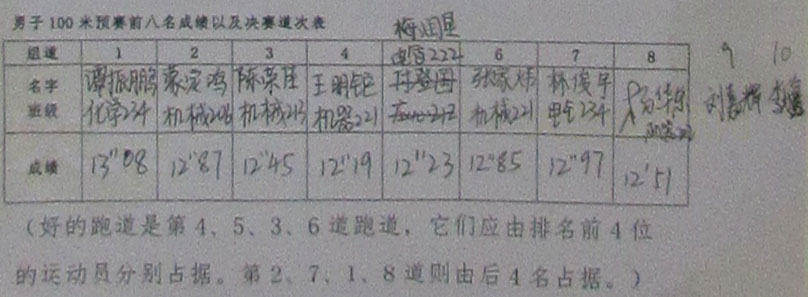 男子100米预赛前八名成绩以及决赛道次表
组道 1 2 3 4 6 7 8 9 10
名字 谭振鹏 蒙定鸿 陈荣佳 王明钜 张家炜 林俊宇 刘嘉辉
班级 化学234 机械206 机械213 机器221 电信222 机械221 电气234
成绩 13"08 12"87 12"45 12"19 12"23 12"85 12"97 12"51
（好的跑道是第4、5、3、6道跑道，它们应由排名前4位
的运动员分别占据。第2、7、1、8道则由后4名占据。）